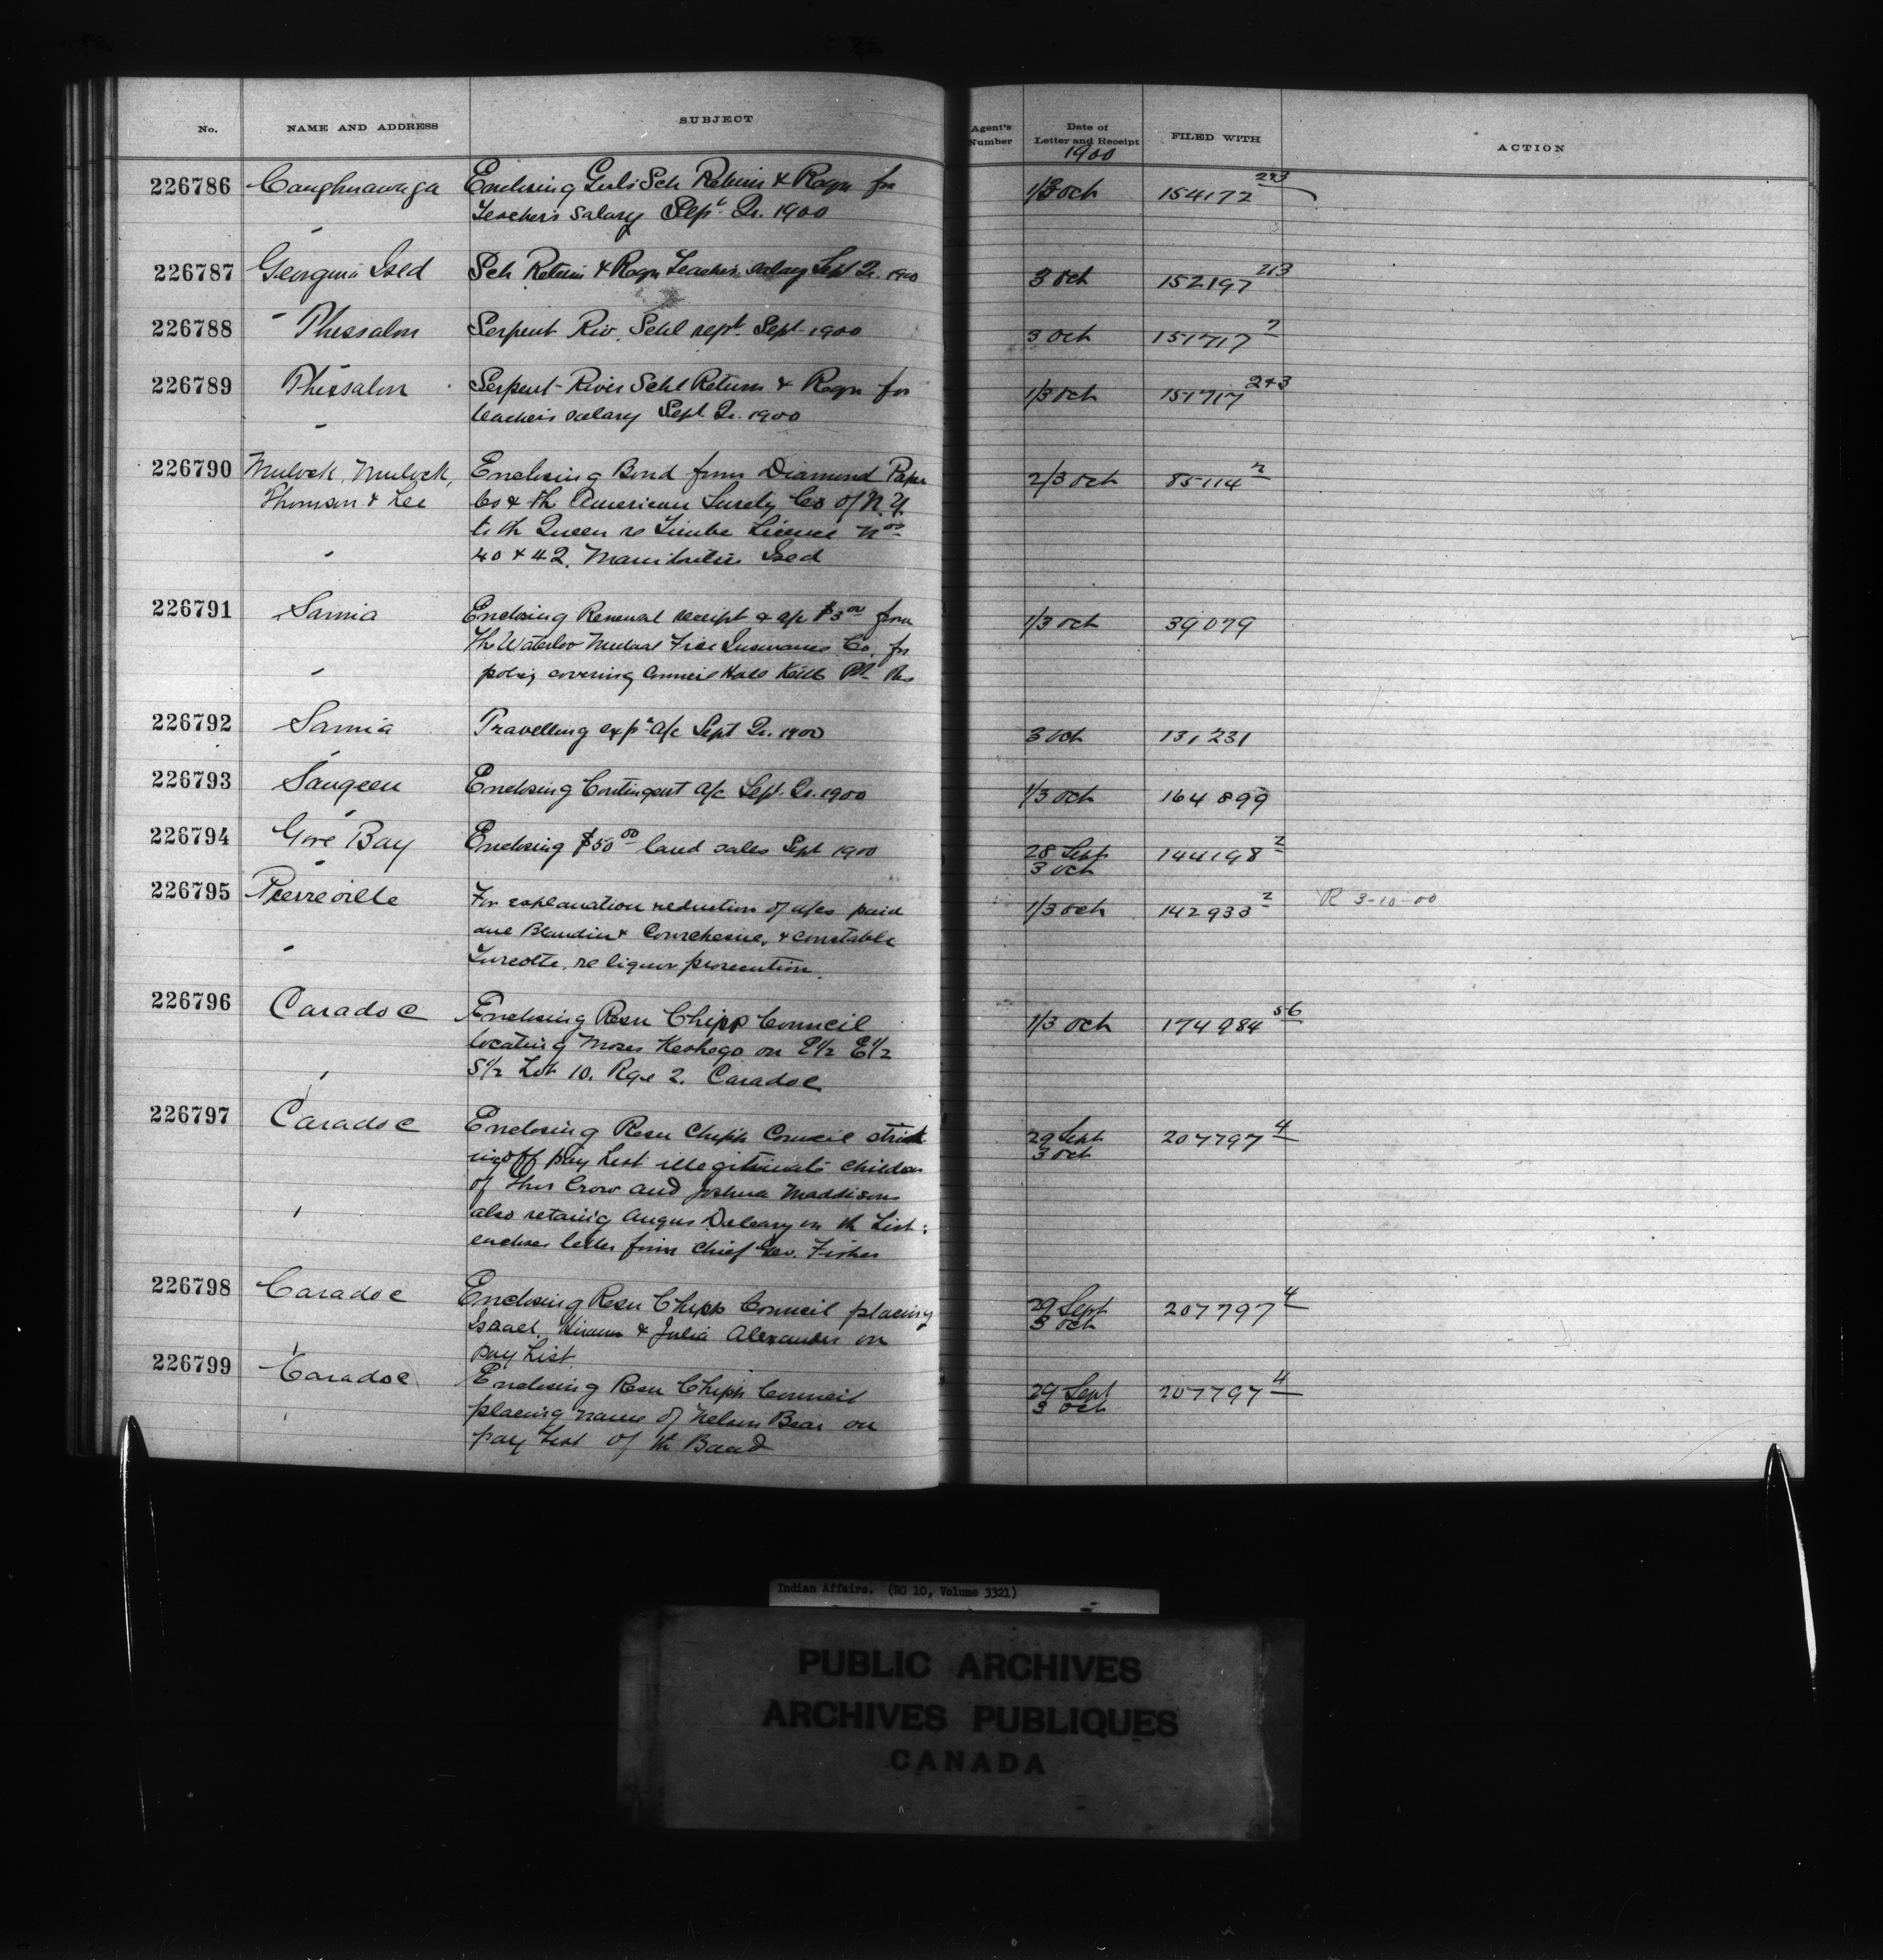 No. NAME AND ADDRESS SUBJECT Agent's Number Date of Letter and Receipt FILED WITH ACTION
1900
226786 Caughnawaga Enclosing Girls Sch Return & Reqn for 1/3 Oct 154172 2&3
Teacher's Salary Sept. Qr. 1900
226787 Georgina Isld Sch Return & Reqn Teacher's salary Sept Qr. 1900 3 Oct 152197 2&3
226788 Thessalon Serpent Riv. Schl rept. Sept 1900 3 Oct 151717 2
226789 Thessalon Serpent River Schl Return & Reqn for 1/3 Oct 151717 2&3
teacher's salary Sept Qr. 1900
226790 Mulock, Mulock, Enclosing Bond from Diamond Paper 2/3 Oct 85114 2
Thomson & Lee Co & th American Surety Co of N.Y.
to th Queen re Timber Licence Nos
40 & 42. Manitoulin Isld
226791 Sarnia Enclosing Renewal receipt & a/c $3 00 from 1/3 Oct 39079
Th Waterloo Mutual Fire Insurance Co. for
policy covering Council Hall Kettle Pt. Res
226792 Sarnia Travelling exps a/c Sept Qr. 1900 3 Oct 131231
226793 Saugeen Enclosing Contingent a/c Sept. Qr. 1900 1/3 Oct 164899
226794 Gore Bay Enclosing $50 00 land sales Sept 1900 28 Sept 144198 2
3 Oct
226795 Pierreville For explanation reduction of a/cs paid 1/3 Oct 142933 2 R 3-10-00
Beaudin & Courchesne, & Constable
Turcotte, re liquor prosecution.
226796 Caradoc Enclosing Resn Chipp Council 1/3 Oct 174984 56
locating Moses Keshego on E1/2 E1/2
S1/2 Lot 10. Rge 2. Caradoc
226797 Caradoc Enclosing Resn Chipp Council strik 29 Sept 207797 4
ing off Pay List illegitimate children 3 Oct
of Thos Crow and Joshua Maddison
also retaing Angus Deleary on th List:
encloses letter from Chief Geo. Fisher
226798 Caradoc Enclosing Resn Chipp Council placing 29 Sept 207797 4
Israel, Hiram & Julia Alexander on 3 Oct
Pay List.
226799 Caradoc Enclosing Resn Chipp Council 29 Sept 207797 4
placing name of Nelson Bear on 3 Oct
pay List of th Band
Indian Affairs. (RG 10, Volume 3321)
PUBLIC ARCHIVES
ARCHIVES PUBLIQUES
CANADA